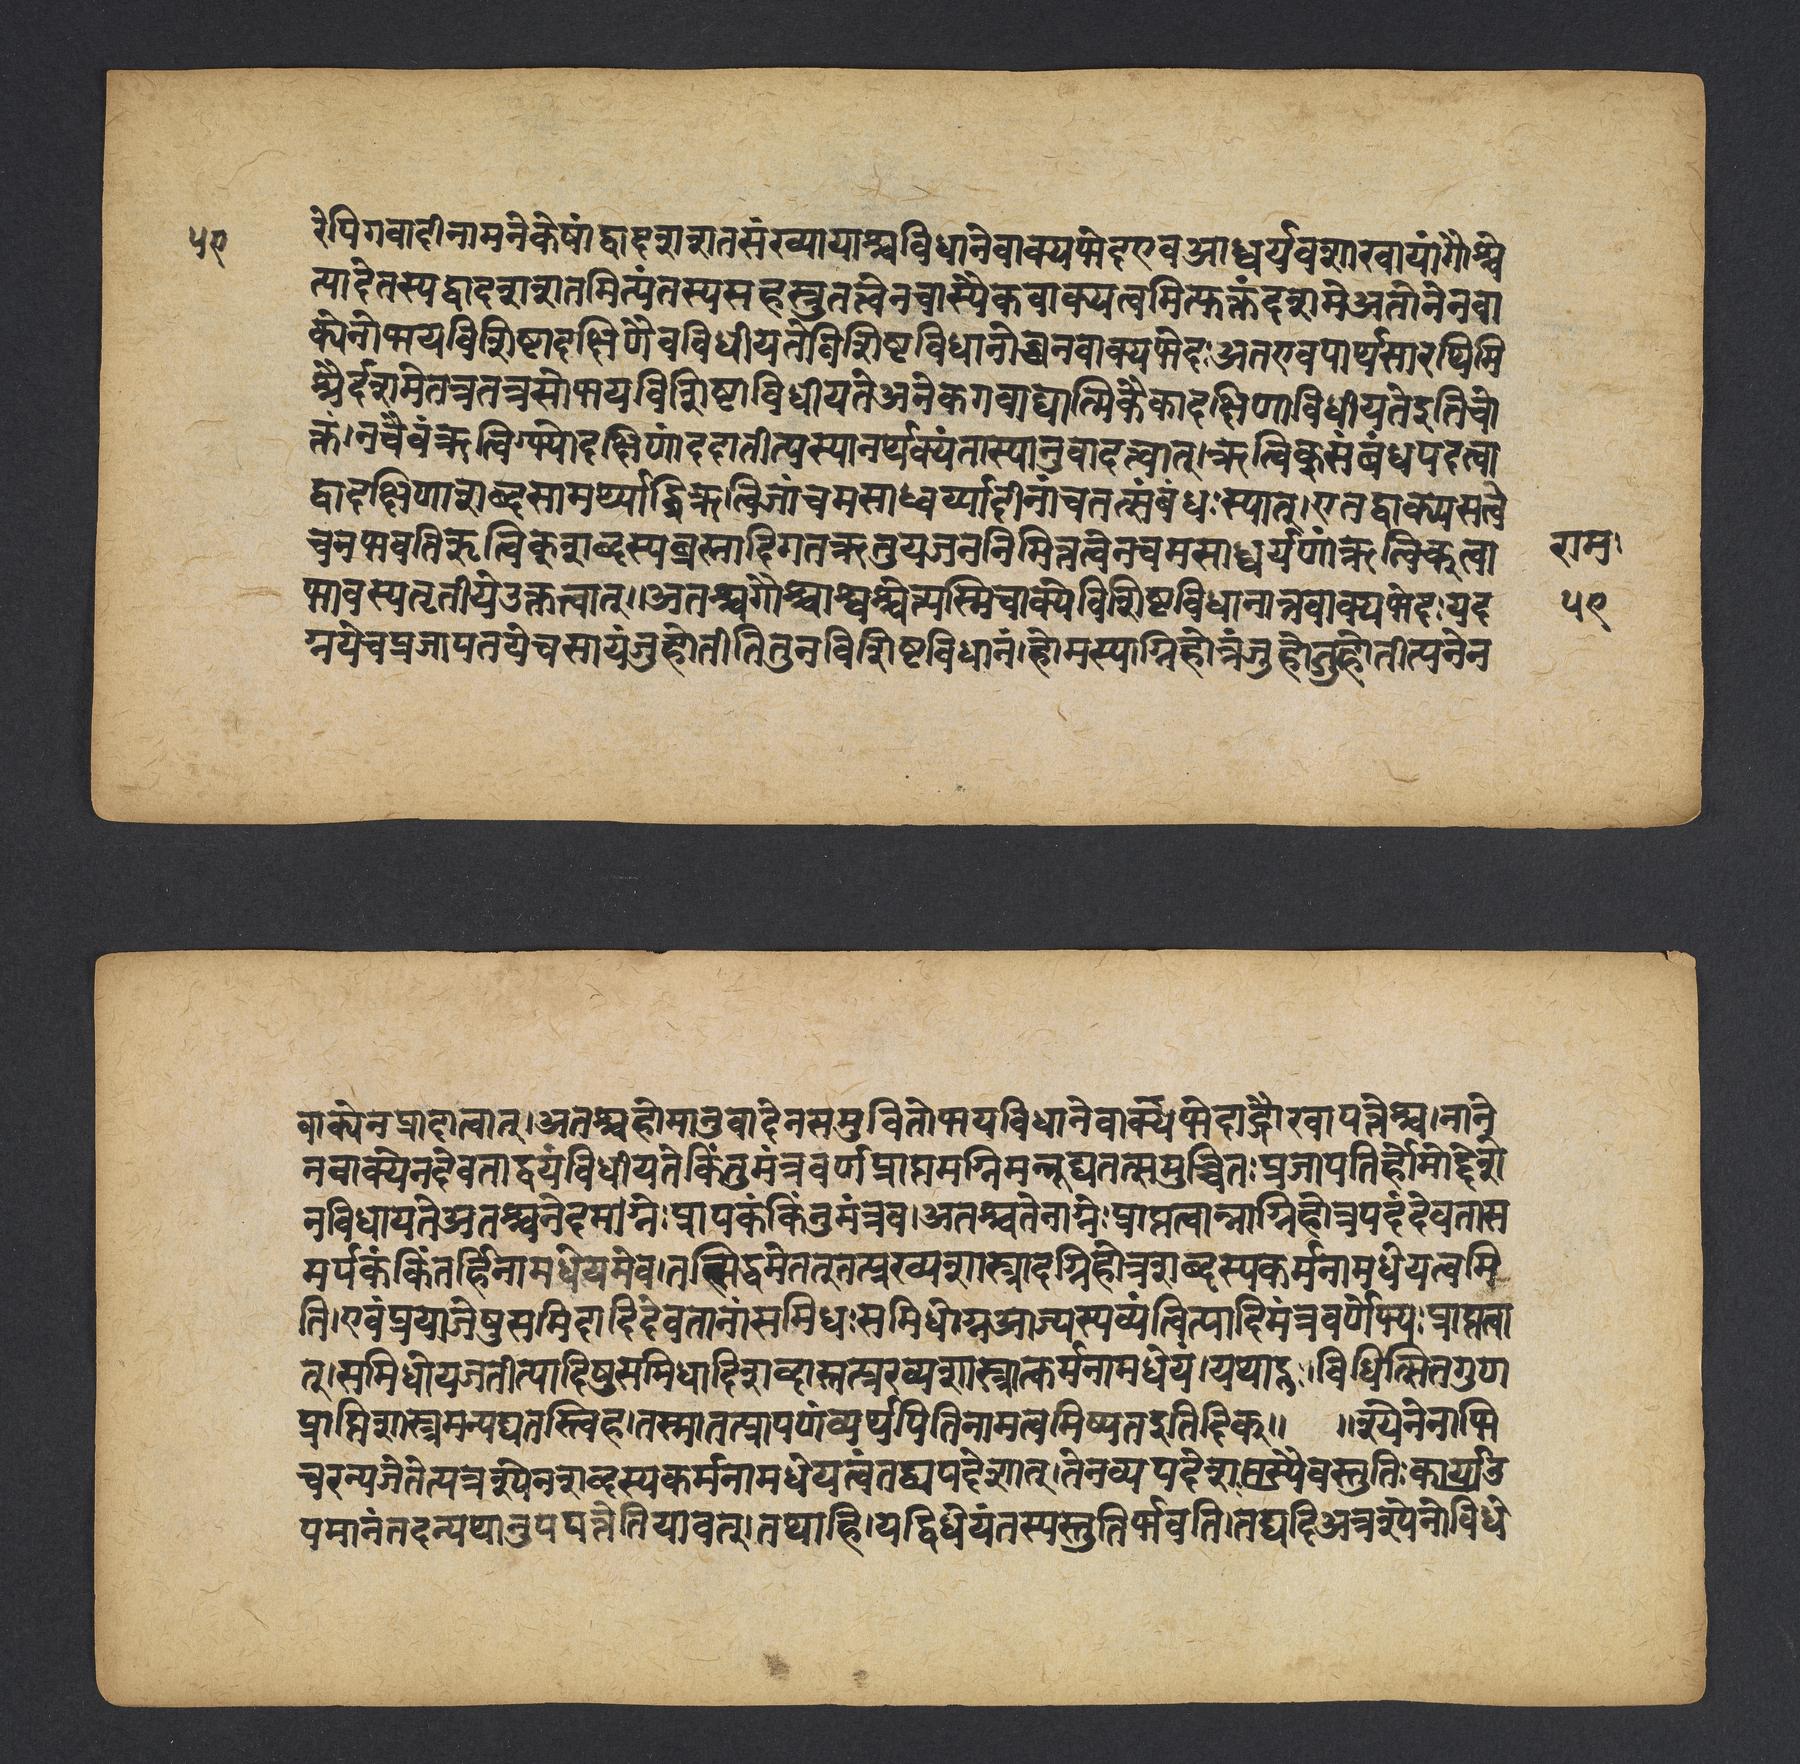 ५९
रेपिगवादीनामनेकेषां द्वादशशतसंख्यायाश्चविधानेवाक्यभेदएवआध्वर्यवशाखायांगौश्चे
त्यादेतस्यद्वादशशतमित्यंतस्यसहस्रुतत्वेनचास्यैकवाक्यत्वमित्युक्तंदशमेअतोनेनवा
क्येनोभयविशिष्टादक्षिणैवविधीयतेविशिष्टविधानोच्चनवाक्यभेदःअतएवपार्थसारथिमि
श्रैर्दशमेतत्रतत्रसोभयविशिष्टाविधीयतेअनेकगवाद्यात्मिकैकादक्षिणाविधीयतेइतिचो
क्तं।नचैवंऋत्विग्भ्योदक्षिणांददातीत्यस्यानर्थक्यंतास्यानुवादत्वात्।ऋत्विक्संबंधपदत्वा
द्वादक्षिणाशब्दसामर्थ्याद्धिऋत्विजांचमसाध्वर्य्यादीनांचतत्संबंधःस्यात्।एतद्वाक्यसत्वे
चनभवतिऋत्विक्शब्दस्यब्रह्मादिगतऋतुयजननिमित्तत्वेनचमसाध्वर्यणांऋत्विक्त्वा
भावस्यतृतीयेउक्तत्वात्॥अतश्चगौश्चाश्वश्चेत्यस्मिवाक्येविशिष्टविधानान्नवाक्यभेदःयद
ग्नयेचप्रजापतयेचसायंजुहोतीतितुनविशिष्टविधानं।होमस्याग्निहोत्रंजुहोतुहोतीत्यनेन
रामः
५९
वाक्येनप्राप्तत्वात्।अतश्चहोमानुवादेनसमुचितोभयविधानेवाक्यभेदाद्गौरवापत्तेश्च।नाने
नवाक्येनदेवताद्वयंविधीयतेकिंतुमंत्रवर्णप्राप्तमग्निमनूद्यतत्समुच्चितःप्रजापतिर्होमोद्देशे
नविधायतेअतश्चनेदमाग्नेःप्रापकंकिंतुमंत्रेव।अतश्चतेनाग्नेःप्राप्तत्वान्नाग्निहोत्रपदंदेवतास
मर्पकंकिंतर्हिनामधेयमेव।तत्सिद्धमेतत्तत्प्रख्यशास्त्रादग्निहोत्रशब्दस्यकर्मनामधेयत्वमि
ति।एवंप्रयाजेषुसमिदादिदेवतानांसमिधःसमिधोग्नआज्यस्यव्यंत्वित्यादिमंत्रवर्णेभ्यःप्राप्तत्वा
त्।समिधोयजतीत्यादिषुसमिधादिशब्दास्तत्प्रख्यशास्त्रात्कर्मनामधेयं।यथाहुः।विधित्सितगुण
प्राप्तिशास्त्रमन्यद्यतस्त्विह।तस्मात्तत्प्रापणंव्यर्थपितिनामत्वमिष्यतइतिदिक्॥ ॥श्येनेनाभि
चरन्यजेतेत्यत्रश्येनशब्दस्यकर्मनामधेयत्वंतद्व्यपदेशात्।तेनव्यपदेशतस्यैवस्तुतिःकार्य्याउ
पमानंतदन्यथानुपपत्तेतियावत्।तथाहि।यद्विधेयंतस्यस्तुतिर्भवति।तद्यदिअत्रश्येनोविधे